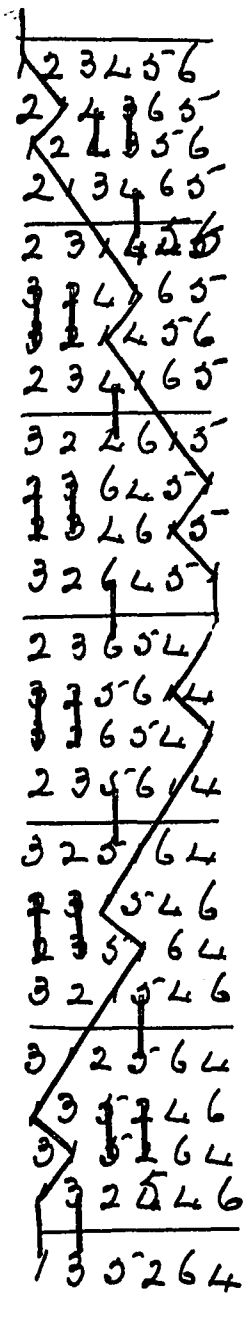 1 2 3 4 5 6
2 1 4 3 6 5
1 2 4 3 5 6
2 1 3 4 6 5
2 3 1 4 5 6
3 2 4 1 6 5
3 2 1 4 5 6
2 3 4 1 6 5
3 2 4 6 1 5
2 3 6 4 5 1
2 3 4 6 1 5
3 2 6 4 5 1
2 3 6 5 4 1
3 2 5 6 1 4
3 2 6 5 4 1
2 3 5 6 1 4
3 2 5 1 6 4
2 3 1 5 4 6
2 3 5 1 6 4
3 2 1 5 4 6
3 1 2 5 6 4
1 3 5 2 4 6
3 1 5 2 6 4
1 3 2 5 4 6
1 3 5 2 6 4